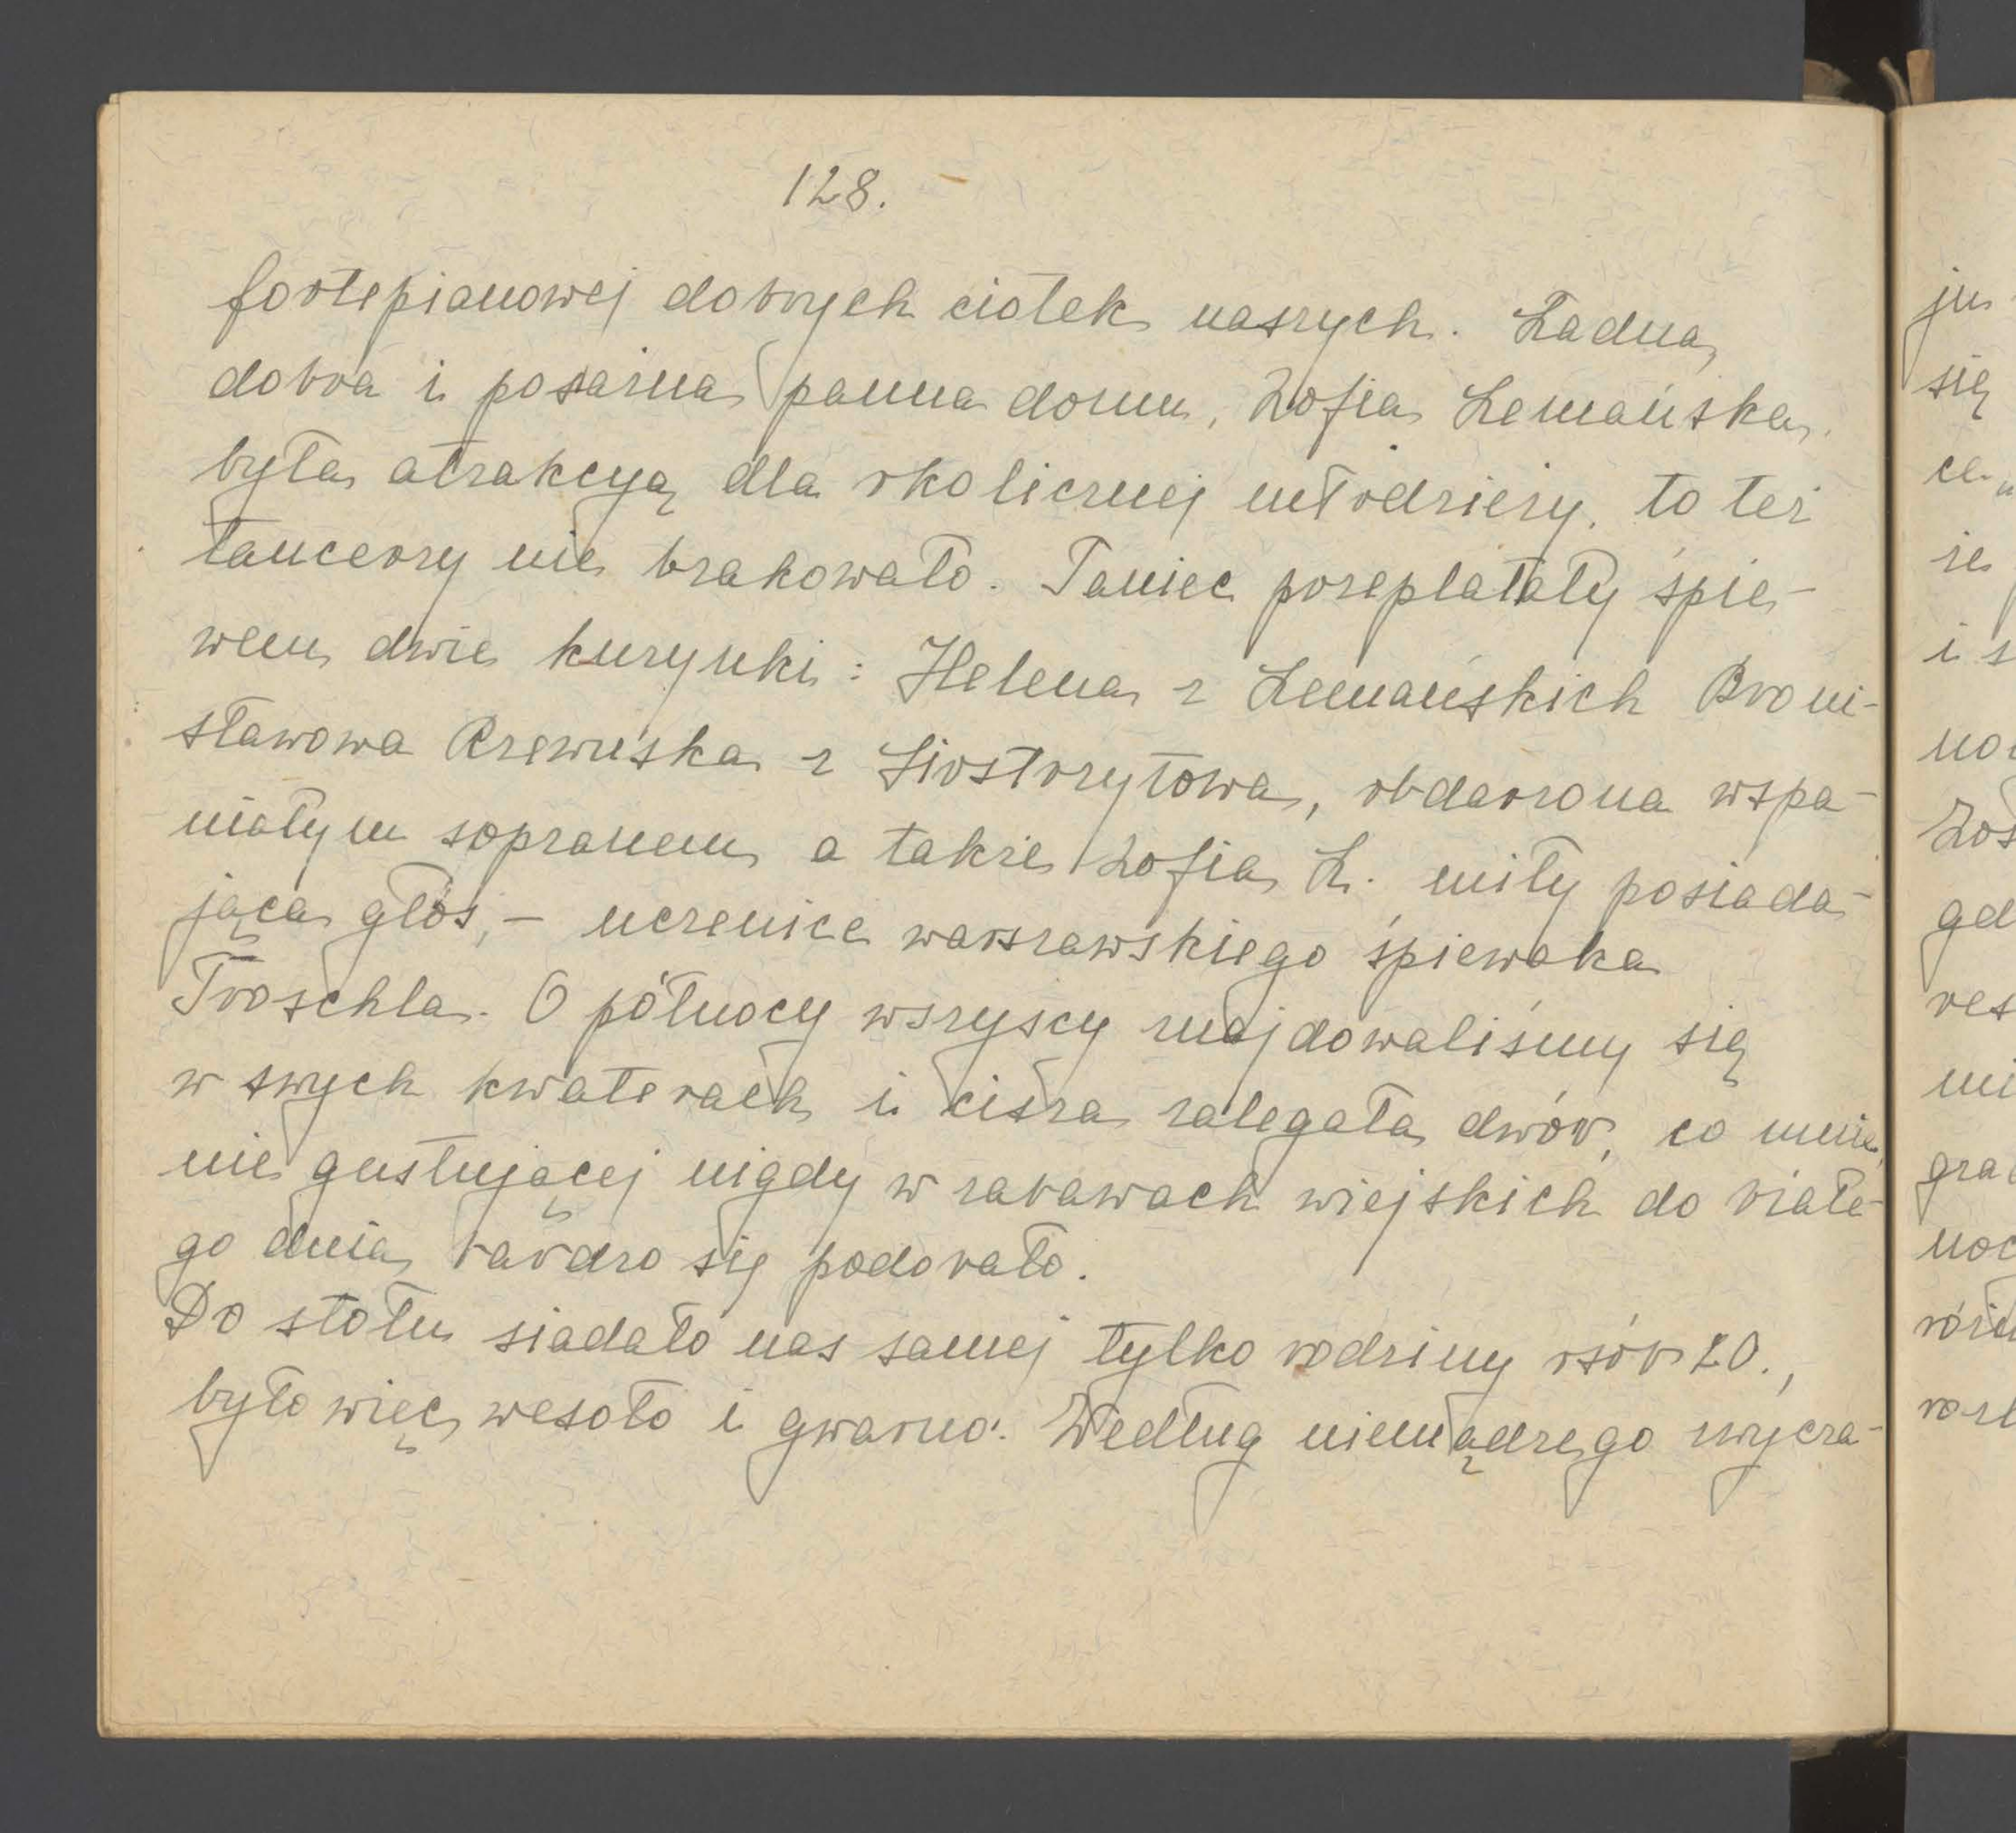 128.
fortepianowej dobrych ciotek naszych. Ładna,
dobra i posażna panna domu, Zofia Lemańska,
była atrakcyą dla okolicznej młodzieży, to też
tancerzy nie brakowało. Taniec przeplatały śpie-
wem dwie kuzynki: Helena z Lemańskich Broni-
sławowa Rzewuska z Siostrzytowa, obdarzona wspa-
niałym sopranem a także Zofia L. miły posiada-
jąca głos, – uczenice warszawskiego śpiewaka
Troschla. O północy wszyscy znajdowaliśmy się
w swych kwaterach i cisza zalegała dwór, co mnie,
nie gustującej nigdy w zabawach wiejskich do białe-
go dnia, bardzo się podobało.
Do stołu siadało nas samej tylko rodziny osób 20.,
było więc wesoło i gwarno. Według niemądrego zwycza-
ju
się
ce
że
i s
Zos
gd
res
ni